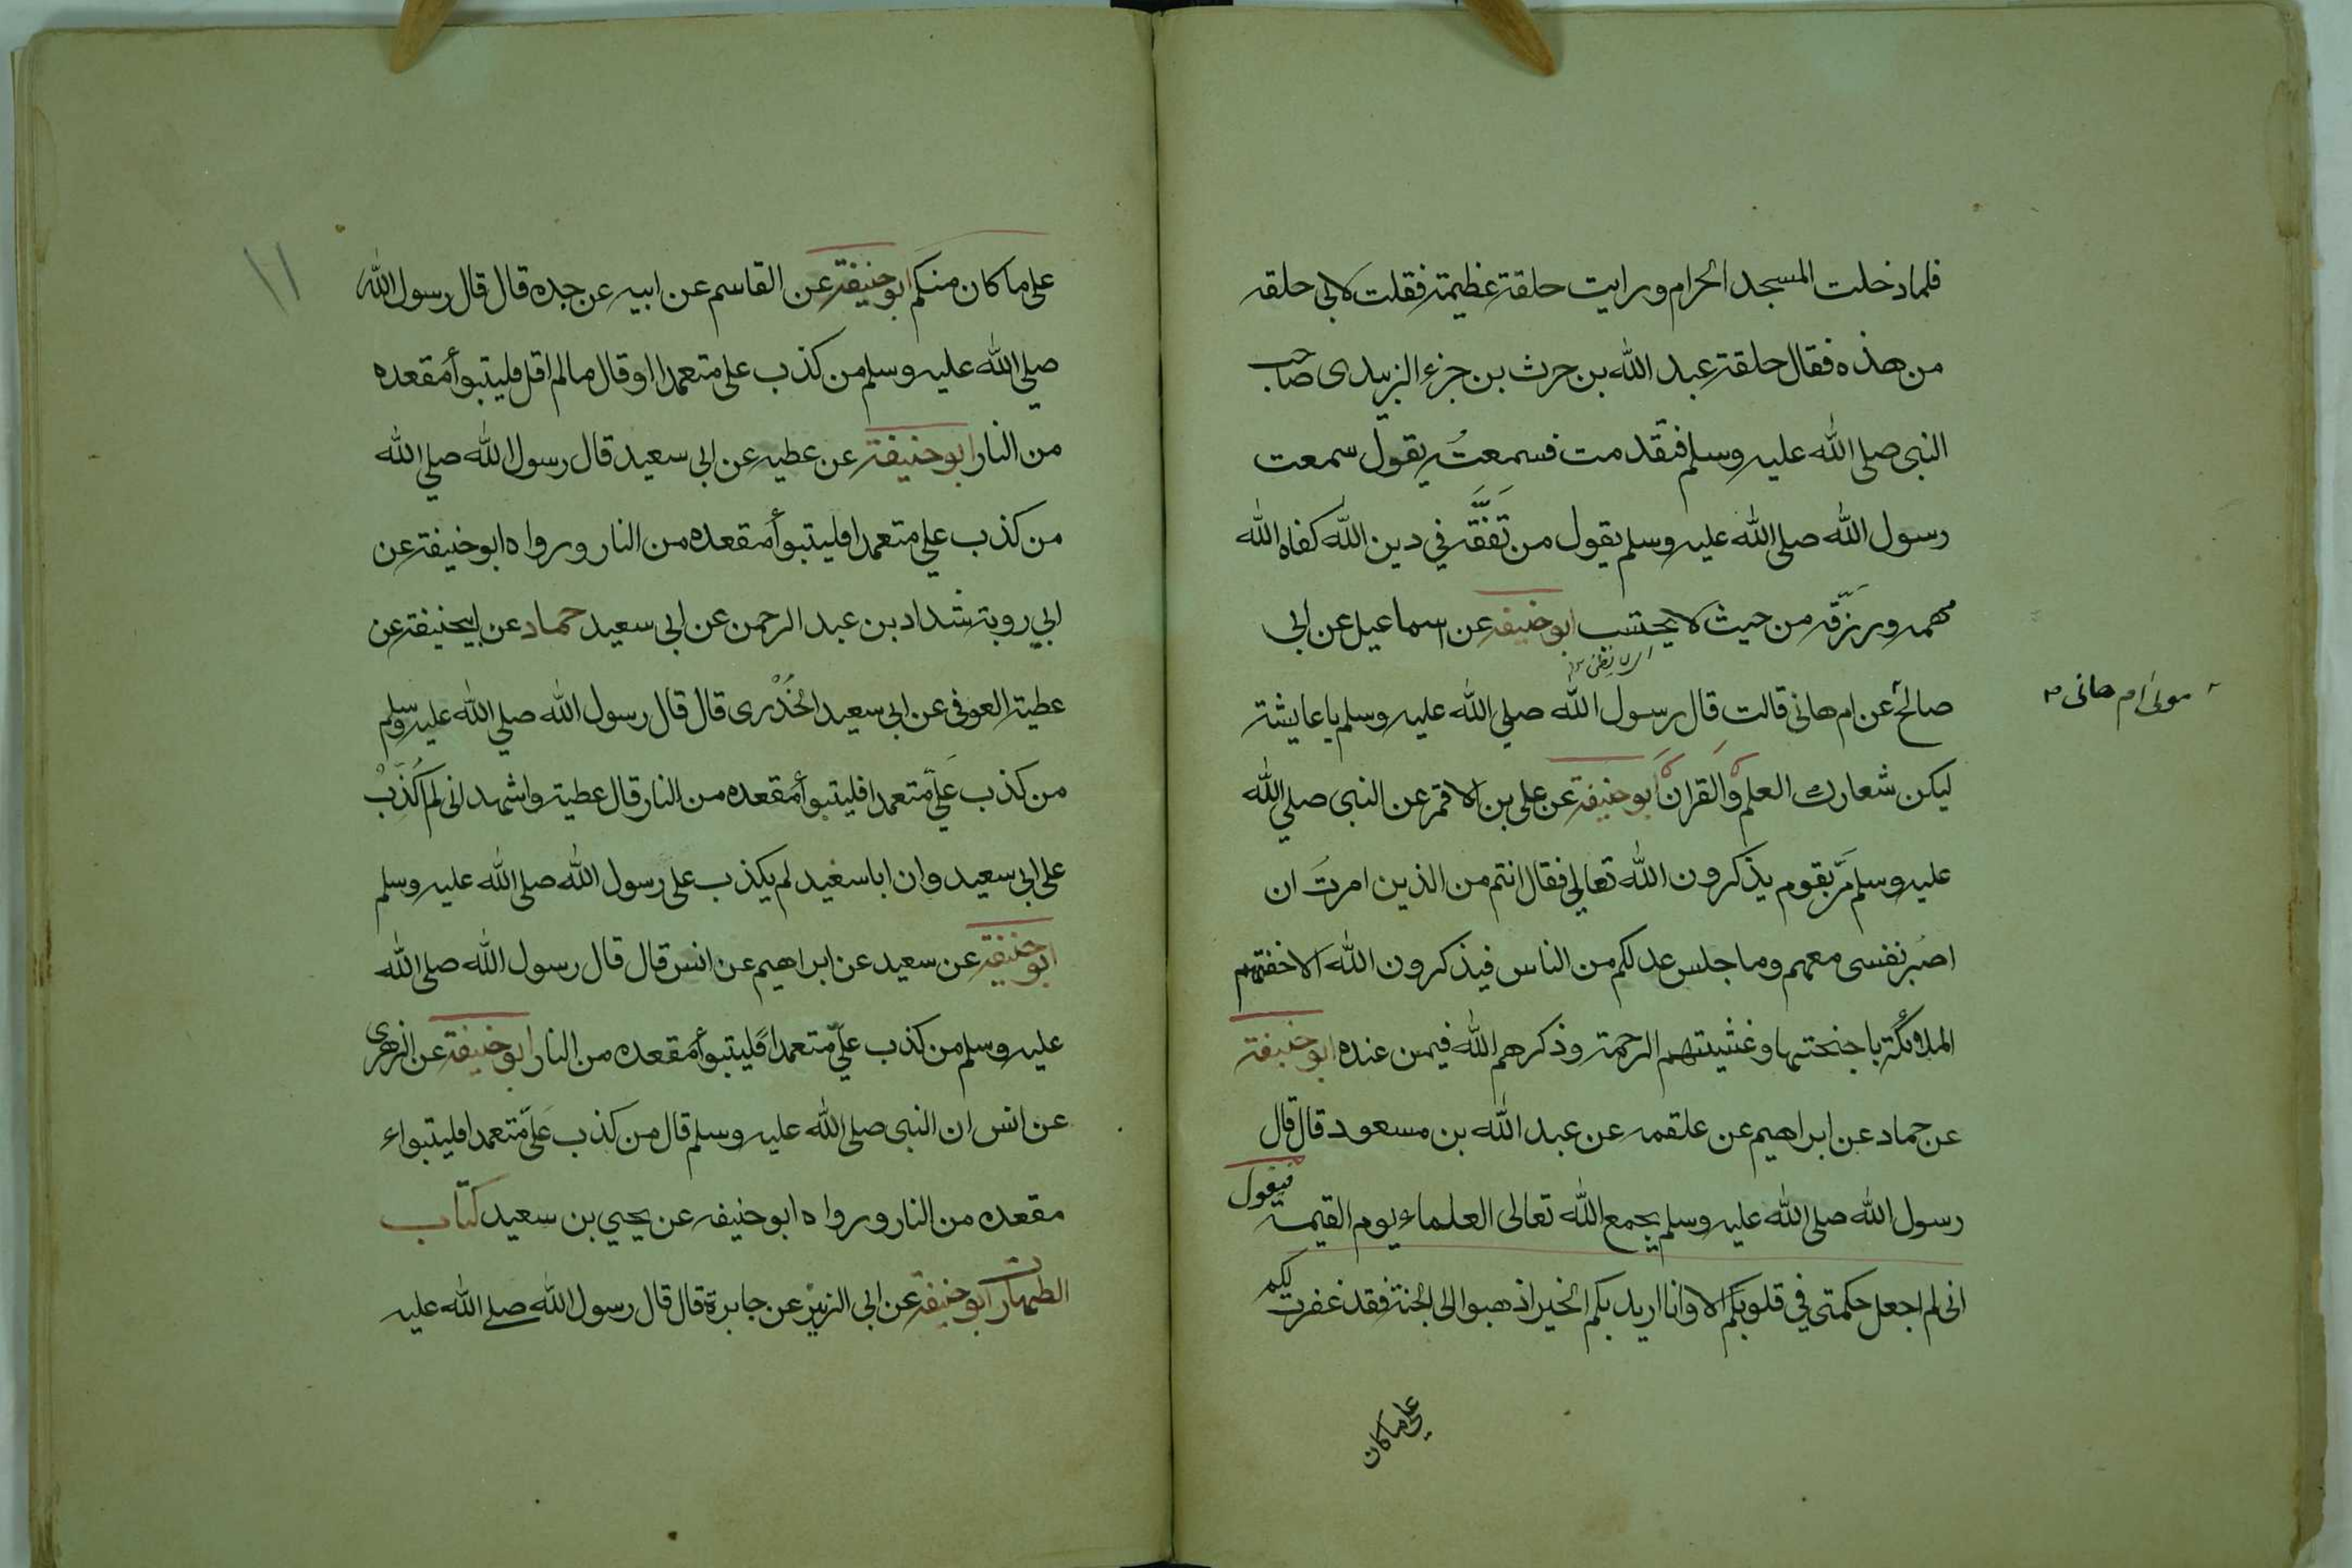 فلما دخلت المسجد الحرام ورايت حلقة عظيمة فقلت لابى حلقة
من هذه فقال حلقة عبد الله بن حرث بن جزء الزبيدى صاحب
النبى صلى الله عليه وسلم فتقدمت فسمعته يقول سمعت
رسول الله صلى الله عليه وسلم يقول من تَفَقَّه في دين الله كفاه الله
مهمه ورزقه من حيث لا يحتسب ابو حنيفه عن اسماعيل عن ابى
صالح عن ام هانى قالت قال رسول الله صلي الله عليه وسلم يا عايشة
مولى ام هانى
ليكن شعارك العلم والقران ابو حنيفة عن على بن الاقمر عن النبى صلي الله
عليه وسلم مرّ بقوم يذكرون الله تعالي فقال انتم من الذين امرت ان
اصبر نفسى معهم وما جلس عدلكم من الناس فيذكرون الله الا حفتهم
الملائكة باجنحتها وغشيتهم الرحمة وذكرهم الله فيمن عنده ابو حنيفة
عن حماد عن ابراهيم عن علقمه عن عبد الله بن مسعود قال قال
رسول الله صلى الله عليه وسلم يجمع الله تعالى العلماء يوم القيمة فيقول
انى لم اجعل حكمتى في قلوبكم الا وانا اريد بكم الخير اذهبوا الى الجنة فقد غفرت لكم
على ما كان
١١
على ما كان منكم ابو حنيفة عن القاسم عن ابيه عن جده قال قال رسول الله
صلي الله عليه وسلم من كذب على متعمدا او قال مالم اقل فليتبوأ مقعده
من النار ابو حنيفة عن عطيه عن ابى سعيد قال رسول الله صلي الله
من كذب علي متعمدا فليتبوأ مقعده من النار ورواه ابو حنيفة عن
ابي روبة شداد بن عبد الرحمن عن ابى سعيد حماد عن ابيحنيفة عن
عطية العوفى عن ابى سعيد الخُدْرى قال قال رسول الله صلي الله عليه وسلم
من كذب عَليَّ متعمدا فليتبوأ مقعده من النار قال عطية واشهد انى لم اكذب
على ابى سعيد وان ابا سعيد لم يكذب على رسول الله صلى الله عليه وسلم
ابو حنيفة عن سعيد عن ابراهيم عن انس قال قال رسول الله صلى الله
عليه وسلم من كذب عليّ متعمداً فليتبوأ مقعده من النار ابو حنيفة عن الزهرى
عن انس ان النبى صلى الله عليه وسلم قال من كذب عَليّ متعمدا فليتبواء
مقعده من النار ورواه ابو حنيفه عن يحيي بن سعيد كتاب
الطهارت ابو حنيفة عن ابى الزبير عن جابرة قال قال رسول الله صلى الله عليه